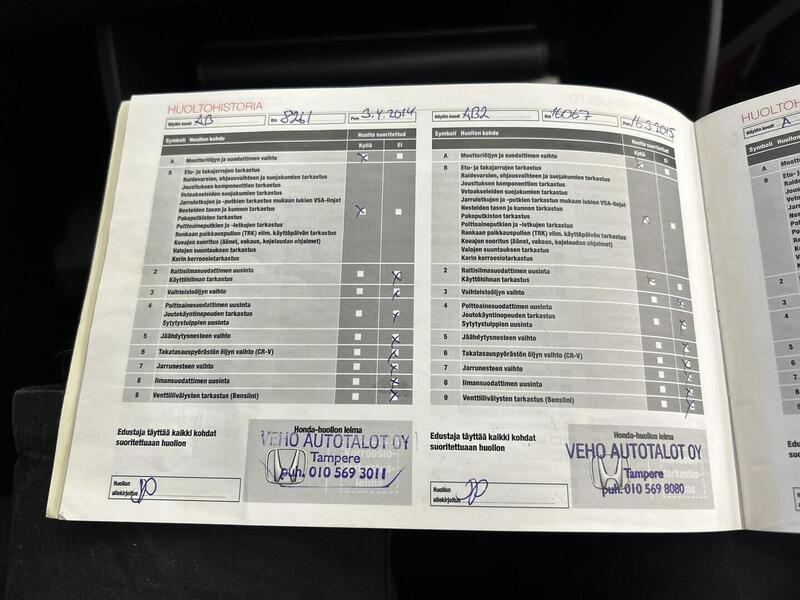 HUOLTOHISTORIA
Näytön koodi AB Km 8261 Pvm 3.4.2014
Symboli Huollon kohde Huolto suoritettu
Kyllä Ei
A Moottoriöljyn ja suodattimen vaihto
B Etu- ja takajarrujen tarkastus
Raidevarsien, ohjausvaihteen ja suojakumien tarkastus
Jousituksen komponenttien tarkastus
Vetoakseleiden suojakumien tarkastus
Jarruletkujen ja -putkien tarkastus mukaan lukien VSA-linjat
Nesteiden tason ja kunnon tarkastus
Pakoputkiston tarkastus
Polttoaineputkien ja -letkujen tarkastus
Renkaan paikkauspullon (TRK) viim. käyttöpäivän tarkastus
Koeajon suoritus (äänet, vakaus, kojelaudan ohjaimet)
Valojen suuntauksen tarkastus
Korin korroosiotarkastus
2 Raitisilmasuodattimen uusinta
Käyttöhihnan tarkastus
3 Vaihteistoöljyn vaihto
4 Polttoainesuodattimen uusinta
Joutokäyntinopeuden tarkastus
Sytytystulppien uusinta
5 Jäähdytysnesteen vaihto
6 Takatasauspyörästön öljyn vaihto (CR-V)
7 Jarrunesteen vaihto
8 Ilmansuodattimen uusinta
9 Venttiilivälysten tarkastus (Bensiini)
Edustaja täyttää kaikki kohdat
suoritettuaan huollon
Honda-huollon leima
VEHO AUTOTALOT OY
Tampere
puh. 010 569 3011
Huollon
allekirjoitus
Näytön koodi AB2 Km 16067 Pvm 16.3.2015
Symboli Huollon kohde Huolto suoritettu
Kyllä Ei
A Moottoriöljyn ja suodattimen vaihto
B Etu- ja takajarrujen tarkastus
Raidevarsien, ohjausvaihteen ja suojakumien tarkastus
Jousituksen komponenttien tarkastus
Vetoakseleiden suojakumien tarkastus
Jarruletkujen ja -putkien tarkastus mukaan lukien VSA-linjat
Nesteiden tason ja kunnon tarkastus
Pakoputkiston tarkastus
Polttoaineputkien ja -letkujen tarkastus
Renkaan paikkauspullon (TRK) viim. käyttöpäivän tarkastus
Koeajon suoritus (äänet, vakaus, kojelaudan ohjaimet)
Valojen suuntauksen tarkastus
Korin korroosiotarkastus
2 Raitisilmasuodattimen uusinta
Käyttöhihnan tarkastus
3 Vaihteistoöljyn vaihto
4 Polttoainesuodattimen uusinta
Joutokäyntinopeuden tarkastus
Sytytystulppien uusinta
5 Jäähdytysnesteen vaihto
6 Takatasauspyörästön öljyn vaihto (CR-V)
7 Jarrunesteen vaihto
8 Ilmansuodattimen uusinta
9 Venttiilivälysten tarkastus (Bensiini)
Edustaja täyttää kaikki kohdat
suoritettuaan huollon
Honda-huollon leima
VEHO AUTOTALOT OY
Tampere
puh. 010 569 8080
Huollon
allekirjoitus
HUOLTOH
Näytön koodi A
Symboli Huollon
A Moottori
B
2
3
4
5
6
7
8
9